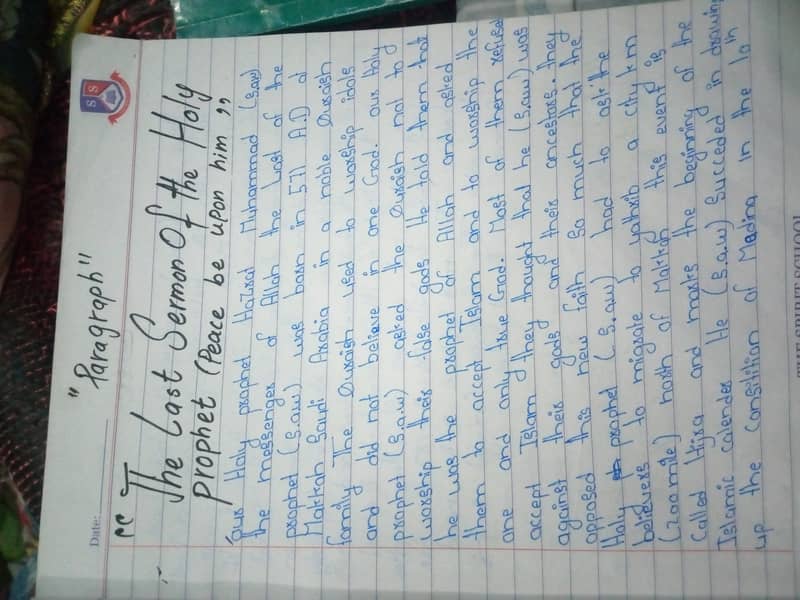 Date:
"Paragraph"
"The Last Sermon Of the Holy
prophet (Peace be upon him"
Our Holy prophet Hazrat Muhammad (s.a.w)
the messenger of Allah the last of the
prophet (s.a.w) was born in 571 A.D at
Makkah Saudi Arabia in a noble Quraish
family The Quraish used to worship idols
and did not believe in one God. our Holy
prophet (s.a.w) asked the Quraish not to
worship their false gods He told them that
he was the prophet of Allah and asked
them to accept Islam and to worship the
one and only true God. Most of them refuse
accept Islam they thought that he (s.a.w) was
against their gods and their ancestors. they
opposed this new faith so much that the
Holy prophet (s.aw) had to ask the
believers to migrate to yathrib a city km
(200 mile) north of Makkah this event is
called Hijra and marks the beginning of the
Islamic calender He (s.a.w) succeded in drawing
up the Constilition of Medina in the 10th
THE SPIRIT SCHOOL
S S